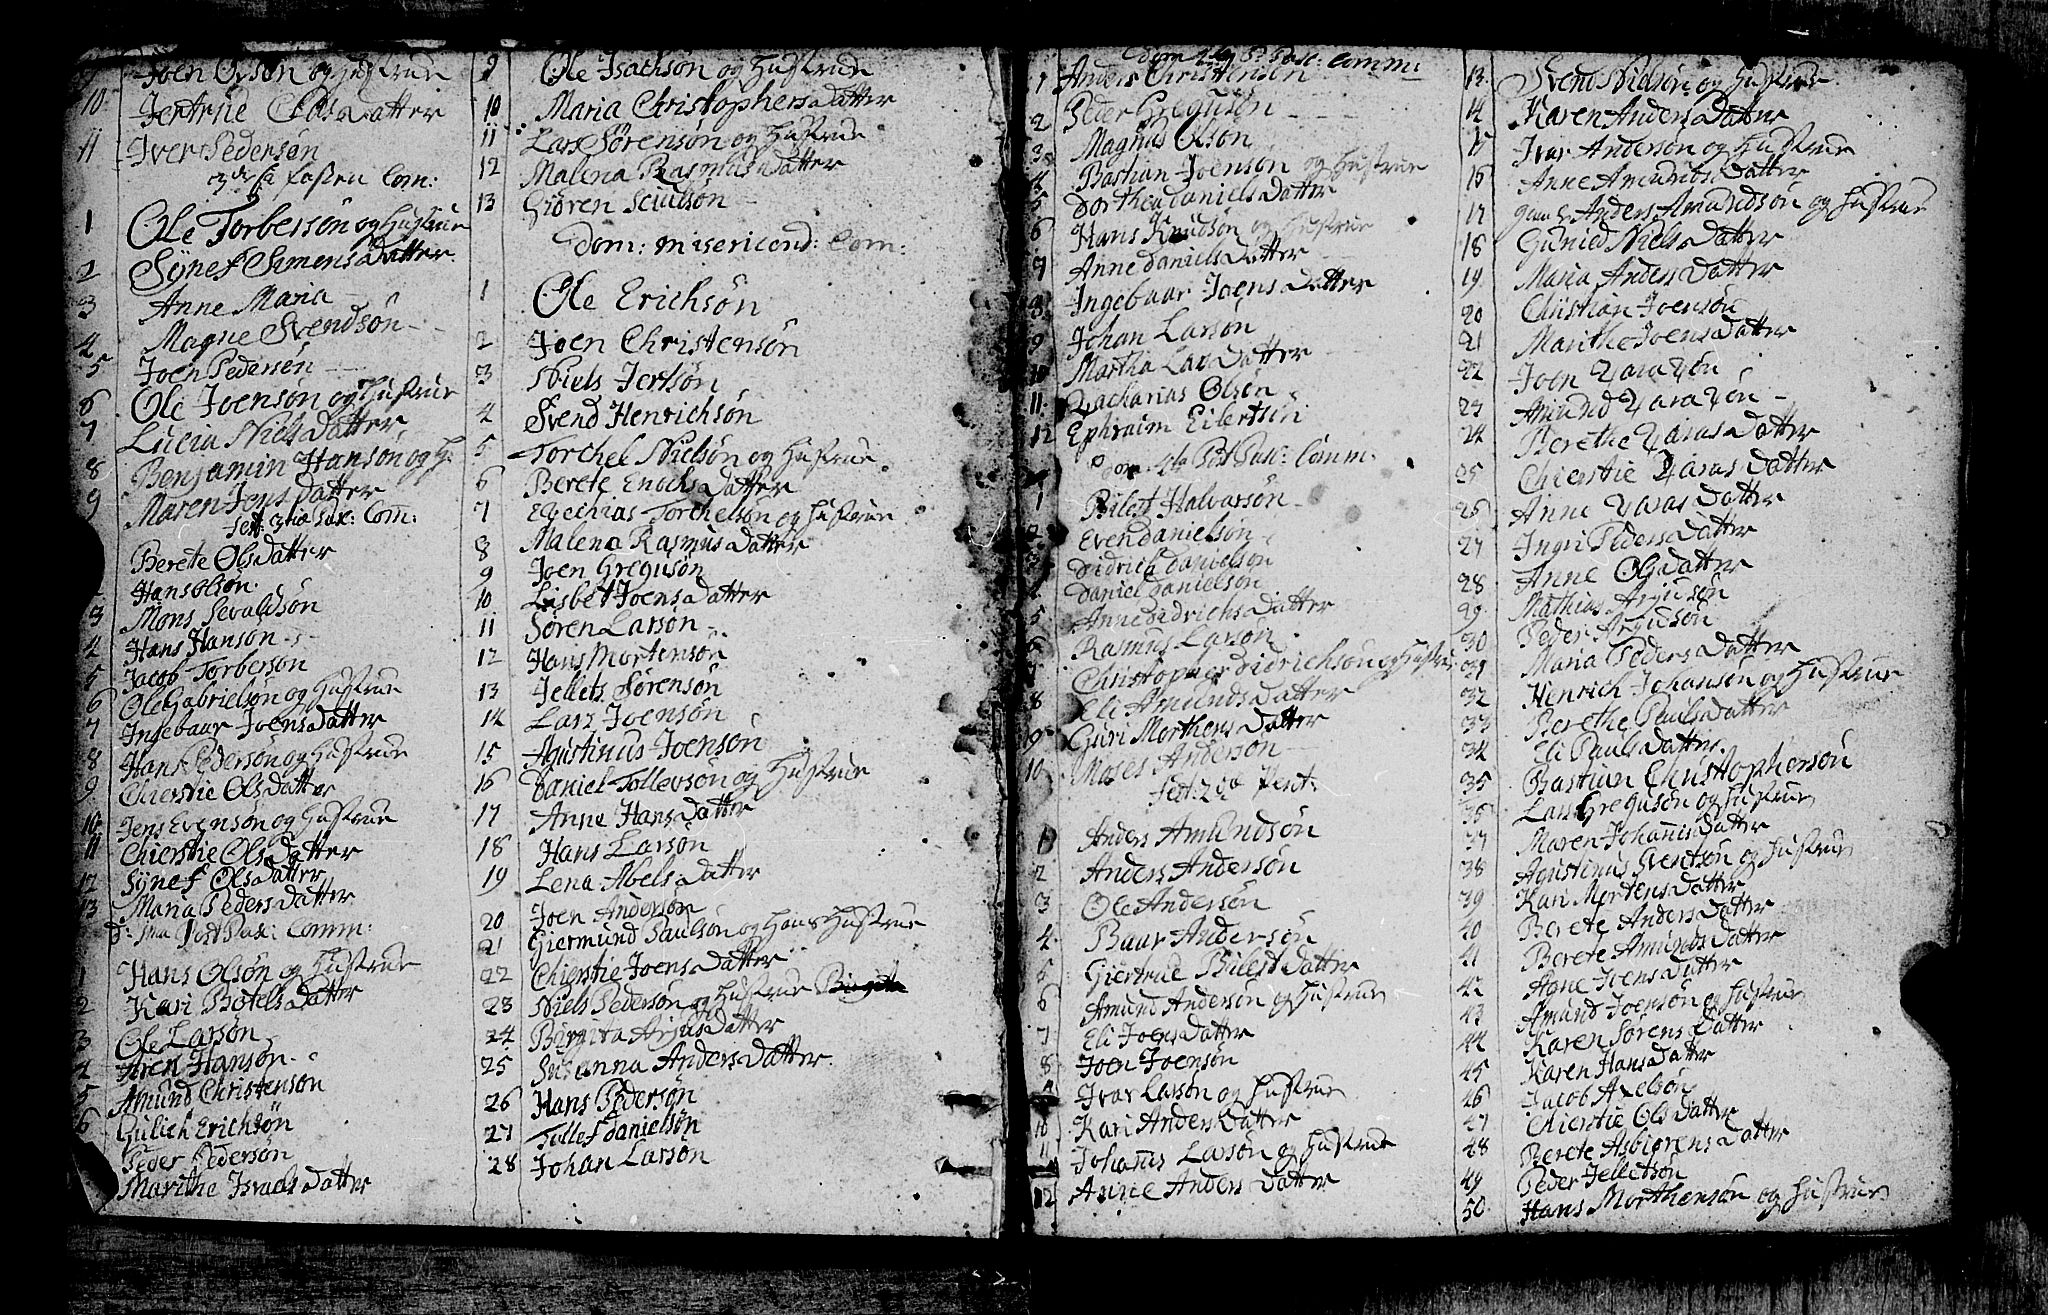 9 Joen Olsøn og Hustrue
10 Jertrue Olas Datter
11 Iver Pedersøn
3die S. i fasten Com:
1 Ole Torbersøn og Hustrue
2 Synef Simens Datter
3 Anne Maria
4 Magne Svendsøn
5 Joen Pedersøn
6 Ole Joensøn og Hustrue
7 Lucia Niels Datter
8 Benjamin Hansøn og H:
9 Maren Jens Datter
Fest: 3tiæ Pasc: Com:
Berete Ols Datter
Hans Olsøn
3 Mons Sevaldsøn
4 Hans Hansøn
5 Jacob Torbersøn
6 Ole Gabrielsøn og Hustrue
7 Ingebaar Joens Datter
8 Hans Pedersøn og Hustrue
9 Chierstie Ols Datter
10 Jens Evensøn og Hustrue
11 Chierstie Ols Datter
12 Synef Ols Datter
13 Maria Peders Datter
D: 1ma Post Pasc: Comm:
1 Hans Olsøn og Hustrue
2 Kari Botels Datter
3 Ole Larsøn
4 Aren Hansøn
5 Amund Christensøn
6 Gulich Erichsøn
Peder Pedersøn
Marithe Israels Datter
9 Ole Isachsøn og Hustrue
10 Maria Christophers Datter
11 Lars Sørensøn og Hustrue
12 Malena Rasmus Datter
13 Giøren Sciulsøn
Dom: misericord: Com:
1 Ole Erichsøn
2 Joen Christensøn
3 Niels Jertsøn
4 Svend Henrichsøn
5 Torchel Nielsøn og Hustrue
6 Berete Enochs Datter
7 Ezechias Torchelsøn og Hustrue
8 Malena Rasmus Datter
9 Joen Gregusøn
10 Lisbet Joens Datter
11 Søren Larsøn
12 Hans Mortensøn
13 Jellets Sørensøn
14 Lars Joensøn
15 Agustinus Joensøn
16 Daniel Tollevsøn og Hustrue
17 Anne Hans Datter
18 Hans Larsøn
19 Lena Abels Datter
20 Joen Andersøn
21 Giermund Paulsøn og Hans Hustrue
22 Chierstie Joens Datter
23 Niels Pedersøn og Hustrue Birgita
24 Birgita Arjus Datter
25 Susanna Anders Datter
26 Hans Pedersøn
27 Tollef Danielsøn
28 Johan Larsøn
Dom 2da P: Pasc: Comm:
1 Anders Christensen
2 Peder Gregusøn
3 Magnus Olson
4 Bastian Joensøn og Hustrue
5 Dorthea Daniels Datter
6 Hans Knudsøn og Hustrue
7 Anne Daniels Datter
8 Ingebaar Joens Datter
9 Johan Larsøn
10 Martha Lars Datter
11 Zacharias Olsen
12 Ephraim Eilertsen
Dom 4ta Post Pasc: Comm:
1 Bilest Halvarsøn
2 Even Danielsøn
3 Didrich Danielsøn
Daniel Danielsøn
5 Anne Didrichs Datter
6 Rasmus Larsøn
7 Christopher Didrichsøn og Hustrue
8 Eli Amunds Datter
9 Guri Morthens Datter
10 Moses Andersøn
Fest: 2da Pent:
1 Anders Amundsøn
2 Anders Andersøn
3 Ole Andersøn
4 Baar Andersøn
5 Giertrue Billest Datter
6 Amund Andersøn og Hustrue
7 Eli Joens Datter
8 Joen Joensøn
9 Ivar Larsøn og Hustrue
10 Kari Anders Datter
11 Johannis Larsøn og Hustrue
12 Anne Anders Datter
13 Svend Nielsøn og Hustrue
14 Karen Anders Datter
15 Ivar Andersøn og Hustrue
16 Anne Amunds Datter
17 gaml: Anders Amundsøn og Hustrue
18 Guned Niels Datter
19 Maria Anders Datter
20 Christian Joensøn
21 Marithe Joens Datter
22 Joen Zarazøn
23 Amund Zarazøn
24 Berethe Zaras Datter
25 Chierstie Zaras Datter
26 Anne Zaras Datter
27 Ingri Peders Datter
28 Anne Ols Datter
29 Mathias Arjusøn
30 Peder Arjusøn
31 Maria Peders Datter
32 Henrich Johansøn og Hustrue
33 Berethe Pauls Datter
34 Eli Pauls Datter
35 Bastian Christophersøn
36 Lars Gregusøn og Hustrue
37 Maren Johannis Datter
38 Agustinus Sventsøn og Hustrue
39 Kari Mortens Datter
40 Berete Anders Datter
41 Berete Amunds Datter
42 Anne Joens Datter
43 Amund Joensøn og Hustrue
44 Karen Sørens Datter
45 Karen Hans Datter
46 Jacob Axelsøn
47 Chierstie Ols Datter
48 Berete Asbiørens Datter
49 Peder Jelletsøn
50 Hans Morthensøn og Hustrue